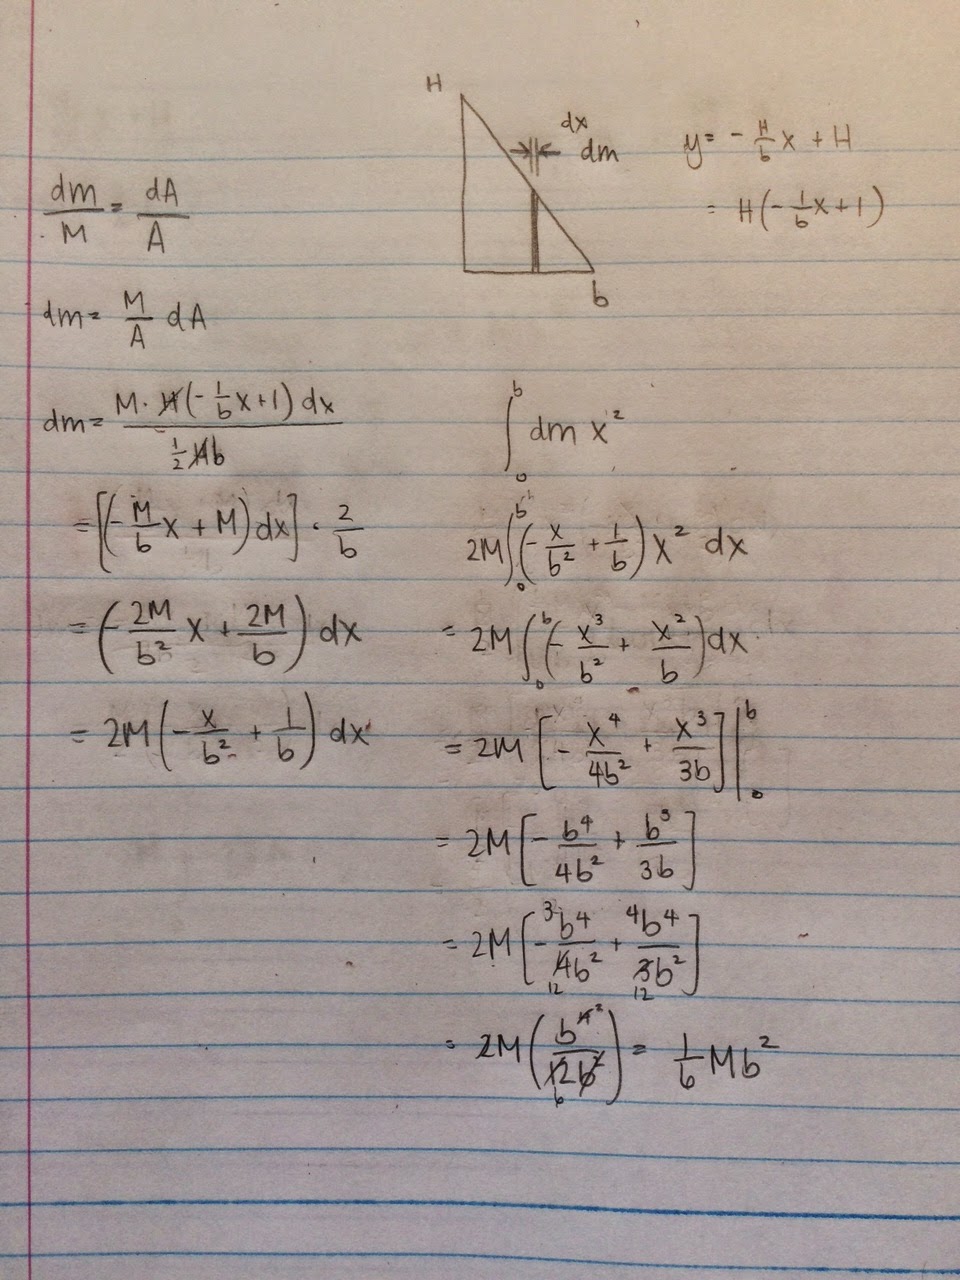 H
dx
dm
b
y = - H/b x + H
= H(- 1/b x + 1)
dm/M = dA/A
dm = M/A dA
dm = M · H(- 1/b x + 1) dx / 1/2 Hb
= [(- M/b x + M) dx] · 2/b
= (- 2M/b² x + 2M/b) dx
= 2M (- x/b² + 1/b) dx
∫₀ᵇ dm x²
2M ∫₀ᵇ (- x/b² + 1/b) x² dx
= 2M ∫₀ᵇ (- x³/b² + x²/b) dx
= 2M [- x⁴/4b² + x³/3b] |₀ᵇ
= 2M [- b⁴/4b² + b³/3b]
= 2M [- 3b⁴/4b² 12 + 4b⁴/3b² 12]
= 2M (b⁴ ²/12b² 6) = 1/6 Mb²